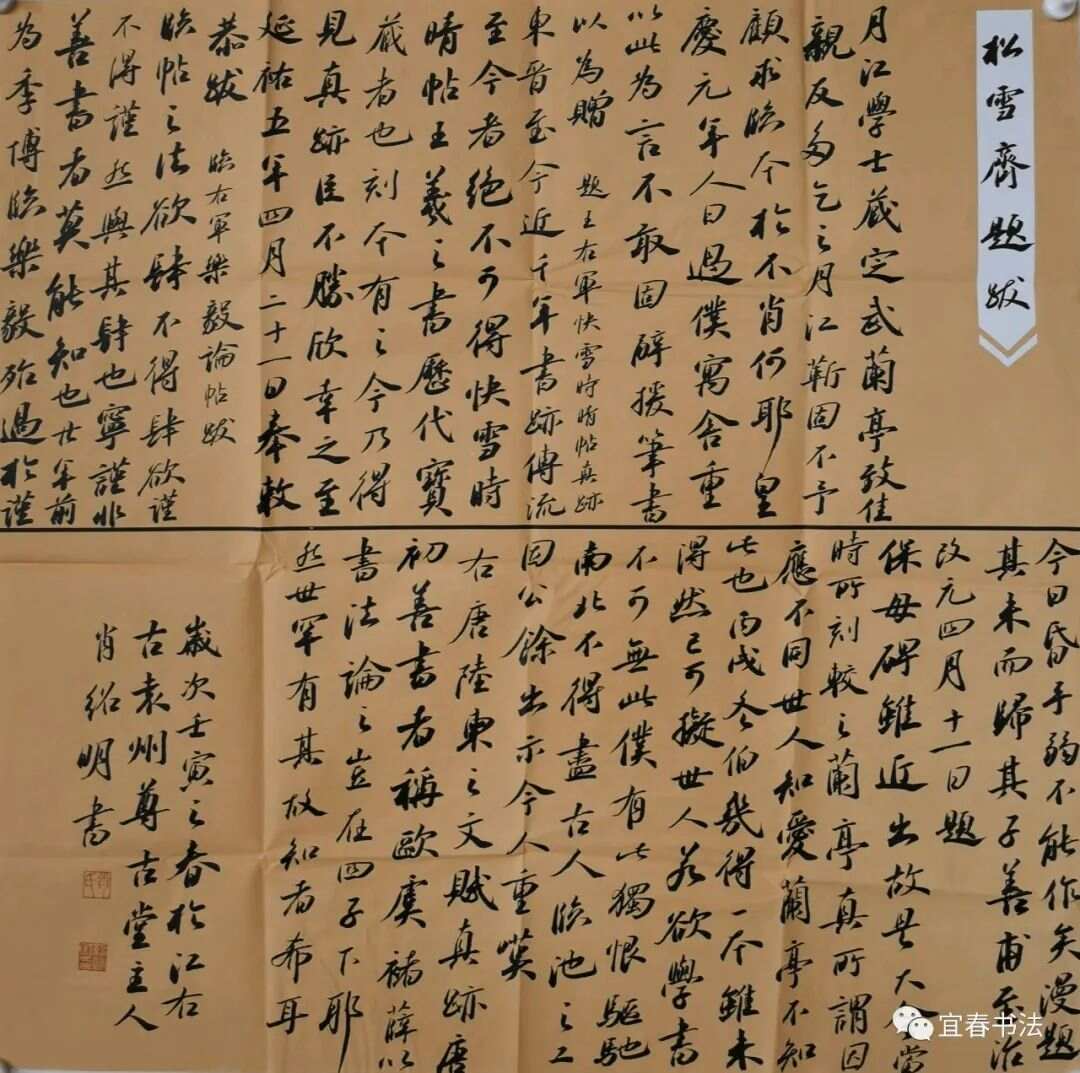 松雪齋題跋
月江學士蔵定武蘭亭致佳
親友多乞之月江靳固不予
顧求臨本於不肖何耶皇
慶元年人日過僕寓舍重
以此為言不敢固辭援筆書
以為贈 題王右軍快雪時晴帖真跡
東晉至今近千年書跡傳流
至今者絶不可得快雪時
晴帖王羲之書歷代寶
蔵者也刻本有之今乃得
見真跡臣不勝欣幸之至
延祐五年四月二十一日奉敕
恭跋 臨右軍樂毅論帖跋
臨帖之法欲肆不得肆欲謹
不得謹然與其肆也寧謹非
善書者莫能知也廿年前
為季博臨樂毅殆過於謹
今日昏手弱不能作矣漫題
其末而歸其子善甫至治
改元四月十一日題
保母碑雖近出故是大令當
時所刻較之蘭亭真所謂因
應不同世人知愛蘭亭不知
此也丙戌冬伯幾得一本雖未
得然已可擬世人若欲學書
不可無此僕有此獨恨驅馳
南北不得盡古人臨池之工
因公餘出示令人重嘆
右唐陸東之文賦真跡唐
初善書者稱歐虞褚薛以
書法論之豈在四子下耶
然世罕有其故知者希耳
歲次壬寅之春於江右
古袁州尊古堂主人
肖紹明書
宜春书法